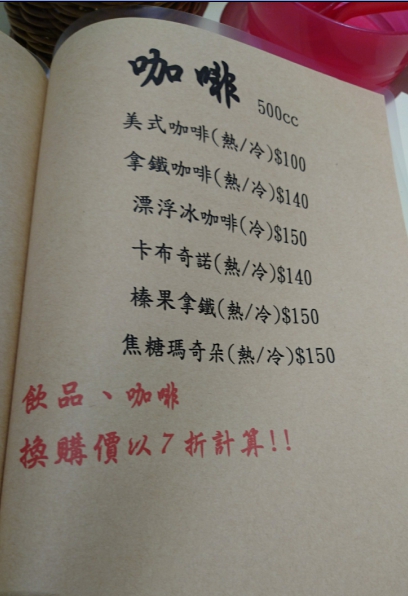 咖啡 500cc
美式咖啡(熱/冷)$100
拿鐵咖啡(熱/冷)$140
漂浮冰咖啡(冷)$150
卡布奇諾(熱/冷)$140
榛果拿鐵(熱/冷)$150
焦糖瑪奇朵(熱/冷)$150
飲品、咖啡
換購價以7折計算!!